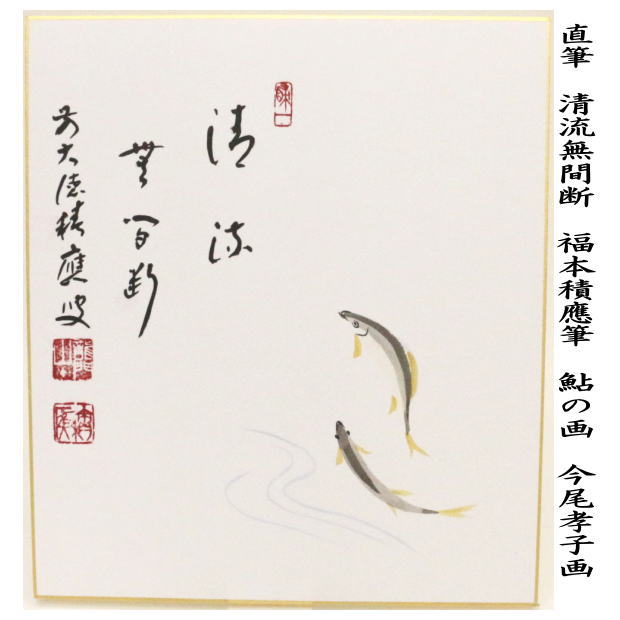 直筆 清流無間断 福本積應筆 鮎の画 今尾孝子画
清流
無間断
前大徳積應叟